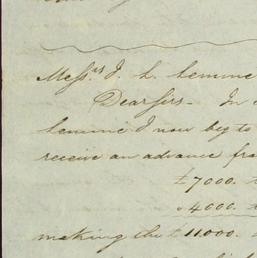 Mess.rs J. L. Lemme
Dear Sirs - In
Lemme I now beg to
receive an advance
£7000.
" 4000.
making the £11.000.